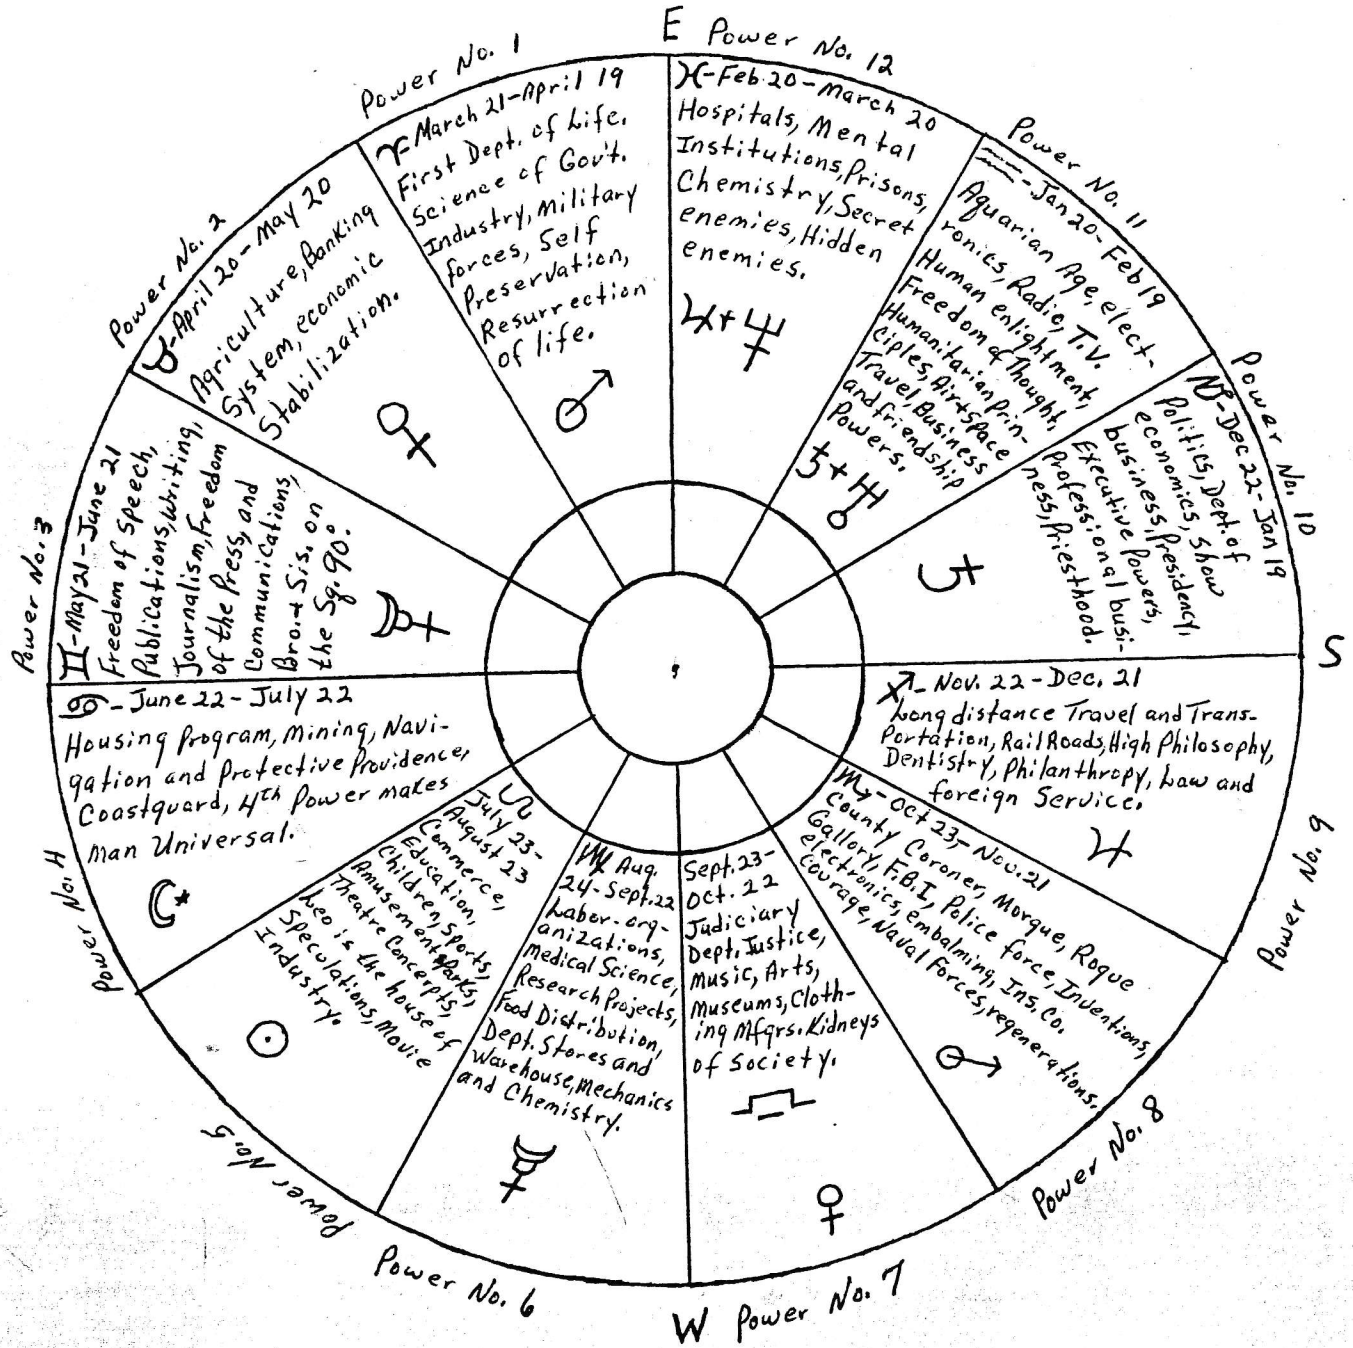 E
Power No. 1
♈-March 21-April 19
First Dept. of Life.
Science of Gov't.
Industry, Military
forces, Self
Preservation,
Resurrection
of life.
♂
Power No. 2
♉-April 20-May 20
Agriculture, Banking
System, economic
Stabilization.
♀
Power No. 3
♊-May 21-June 21
Freedom of Speech,
Publications, writing,
Journalism, Freedom
of the Press, and
Communications,
Bro. & Sis. on
the Sq. 90°.
☿
Power No. 4
♋-June 22-July 22
Housing Program, Mining, Navi-
gation and Protective Providence,
Coastguard, 4th Power makes
Man Universal.
☾*
Power No. 5
♌
July 23-
August 23
Commerce,
Education,
Children, Sports,
Amusement Parks,
Theatre Concepts,
Leo is the house of
Speculations, Movie
Industry.
☉
Power No. 6
♍ Aug.
24-Sept. 22
Labor-org-
anizations,
Medical Science,
Research Projects,
Food Distribution,
Dept. Stores and
Warehouse, Mechanics
and Chemistry.
☿
W
Power No. 7
Sept. 23-
Oct. 22
Judiciary
Dept. Justice,
Music, Arts,
Museums, Cloth-
ing Mfgrs. Kidneys
of Society.
♎
♀
Power No. 8
♏-Oct 23,-Nov. 21
County Coroner, Morgue, Rogue
Gallory, F.B.I, Police force, Inventions,
electronics, embalming, Ins. Co.
Courage, Naval Forces, regenerations.
♂
Power No. 9
♐-Nov. 22-Dec. 21
Long distance Travel and Trans-
Portation, Rail Roads, High Philosophy,
Dentistry, Philanthropy, Law and
foreign Service.
♃
S
Power No. 10
♑-Dec 22-Jan 19
Politics, Dept. of
economics, Show
business, Presidency,
Executive Powers,
Professional busi-
ness, Priesthood.
♄
Power No. 11
♒-Jan 20-Feb 19
Aquarian Age, elect-
ronics, Radio, T.V.
Human enlightment,
Freedom of Thought,
Humanitarian Prin-
ciples, Air+Space
Travel, Business
and friendship
Powers.
♄+♅
Power No. 12
♓-Feb. 20-March 20
Hospitals, Mental
Institutions, Prisons,
Chemistry, Secret
enemies, Hidden
enemies.
♃+♆